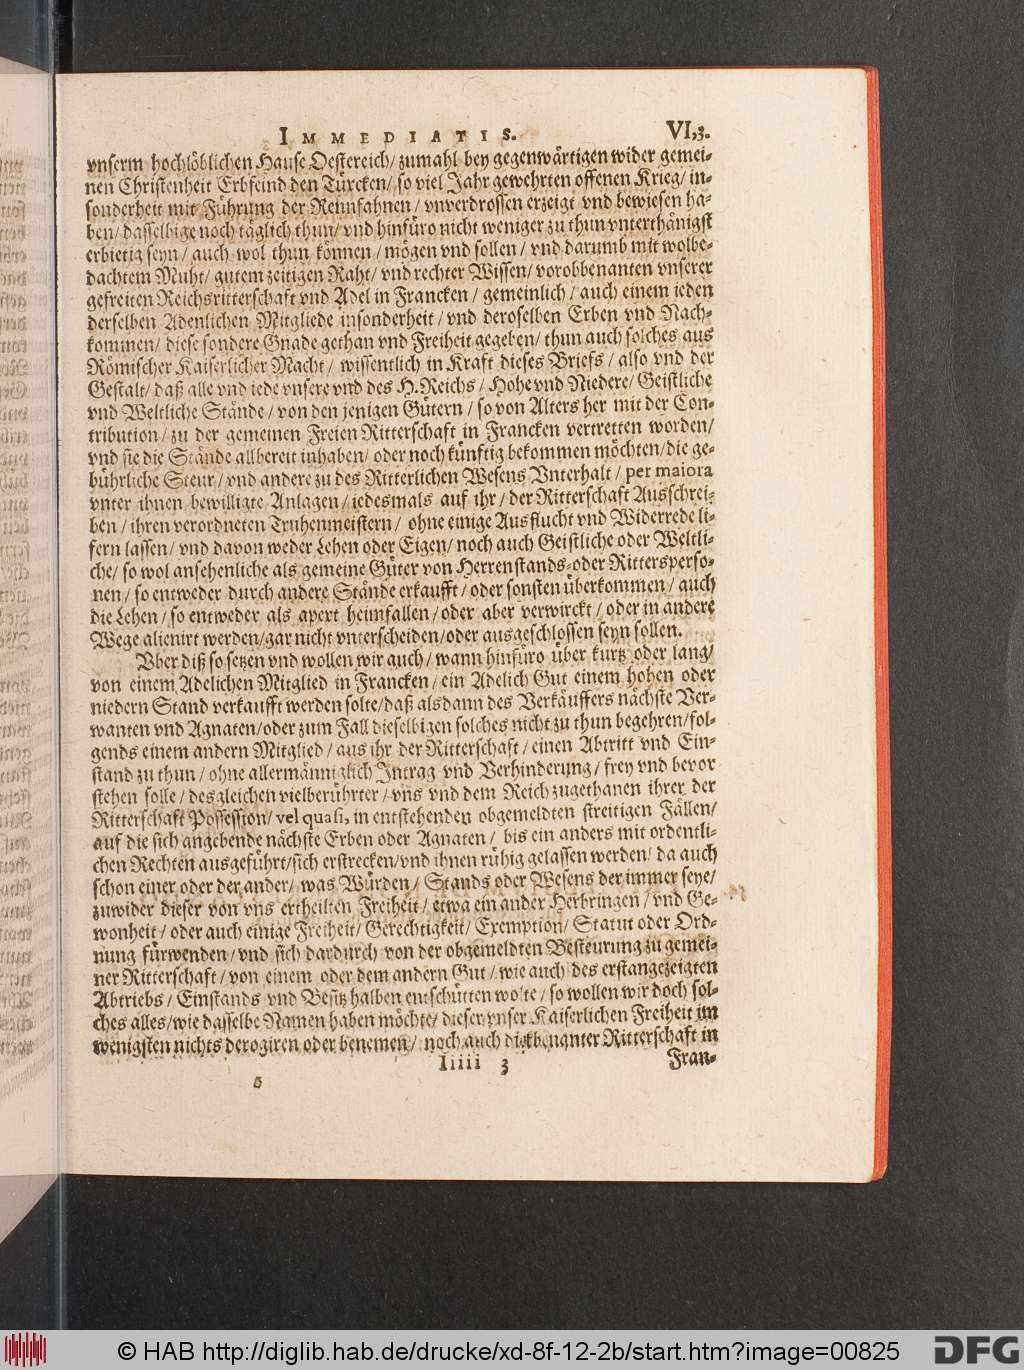 IMMEDIATIS. VI,3.
vnserm hochlöblichen Hause Oestereich/ zumahl bey gegenwärtigen wider gemei-
nen Christenheit Erbfeind den Türcken/ so viel Jahr gewehrten offenen Krieg/ in-
sonderheit mit Führung der Rennfahnen/ vnverdrossen erzeigt vnd bewiesen ha-
ben/ dasselbige noch täglich thun/ vnd hinfüro nicht weniger zu thun vnterthänigst
erbietig seyn/ auch wol thun können/ mögen vnd sollen/ vnd darumb mit wolbe-
dachtem Muht/ gutem zeitigen Raht/ vnd rechter Wissen/ vorobbenanten vnserer
gefreiten Reichsritterschaft vnd Adel in Francken/ gemeinlich/ auch einem ieden
derselben Adenlichen Mitgliede insonderheit/ vnd deroselben Erben vnd Nach-
kommen/ diese sondere Gnade gethan vnd Freiheit gegeben/ thun auch solches aus
Römischer Kaiserlicher Macht/ wissentlich in Kraft dieses Briefs/ also vnd der
Gestalt/ daß alle vnd iede vnsere vnd des H. Reichs/ Hohe vnd Niedere/ Geistliche
vnd Weltliche Stände/ von den jenigen Gütern/ so von Alters her mit der Con-
tribution/ zu der gemeinen Freien Ritterschaft in Francken vertretten worden/
vnd sie die Stände allbereit inhaben/ oder noch künftig bekommen möchten/ die ge-
bührliche Steur/ vnd andere zu des Ritterlichen Wesens Vnterhalt/ per maiora
vnter ihnen bewilligte Anlagen/ iedesmals auf ihr/ der Ritterschaft Ausschrei-
ben/ ihren verordneten Truhenmeistern/ ohne einige Ausflucht vnd Widerrede li-
fern lassen/ vnd davon weder Lehen oder Eigen/ noch auch Geistliche oder Weltli-
che/ so wol ansehenliche als gemeine Güter von Herrenstands- oder Rittersperso-
nen/ so entweder durch andere Stände erkaufft/ oder sonsten überkommen/ auch
die Lehen/ so entweder als apert heimfallen/ oder aber verwirckt/ oder in andere
Wege alienirt werden/ gar nicht vnterscheiden/ oder ausgeschlossen seyn sollen.
Vber diß so setzen vnd wollen wir auch/ wann hinfüro über kurtz oder lang/
von einem Adelichen Mitglied in Francken/ ein Adelich Gut einem hohen oder
niedern Stand verkaufft werden solte/ daß alsdann des Verkäuffers nächste Ver-
wanten vnd Agnaten/ oder zum Fall dieselbigen solches nicht zu thun begehren/ fol-
gends einem andern Mitglied/ aus ihr der Ritterschaft/ einen Abtritt vnd Ein-
stand zu thun/ ohne allermänniglich Intrag vnd Verhinderung/ frey vnd bevor
stehen solle/ desgleichen vielberührter/ vns vnd dem Reich zugethanen ihrer der
Ritterschaft Possession/ vel quasi, in entstehenden obgemeldten streitigen Fällen/
auf die sich angebende nächste Erben oder Agnaten/ bis ein anders mit ordentli-
chen Rechten ausgeführt/ sich erstrecken/ vnd ihnen rühig gelassen werden/ da auch
schon einer oder der ander/ was Würden/ Stands oder Wesens der immer seye/
zuwider dieser von vns ertheilten Freiheit/ etwa ein ander Herbringen/ vnd Ge-
wonheit/ oder auch einige Freiheit/ Gerechtigkeit/ Exemption/ Statut oder Ord-
nung fürwenden/ vnd sich dardurch von der obgemeldten Besteurung zu gemei-
ner Ritterschaft/ von einem oder dem andern Gut/ wie auch des erstangezeigten
Abtriebs/ Einstands vnd Besitz halben entschütten wolte/ so wollen wir doch sol-
ches alles/ wie dasselbe Namen haben möchte/ dieser vnser Kaiserlichen Freiheit im
wenigsten nichts derogiren oder benemen/ noch auch dickbenanter Ritterschaft in
Iiiii 3 Fran-
© HAB http://diglib.hab.de/drucke/xd-8f-12-2b/start.htm?image=00825
DFG